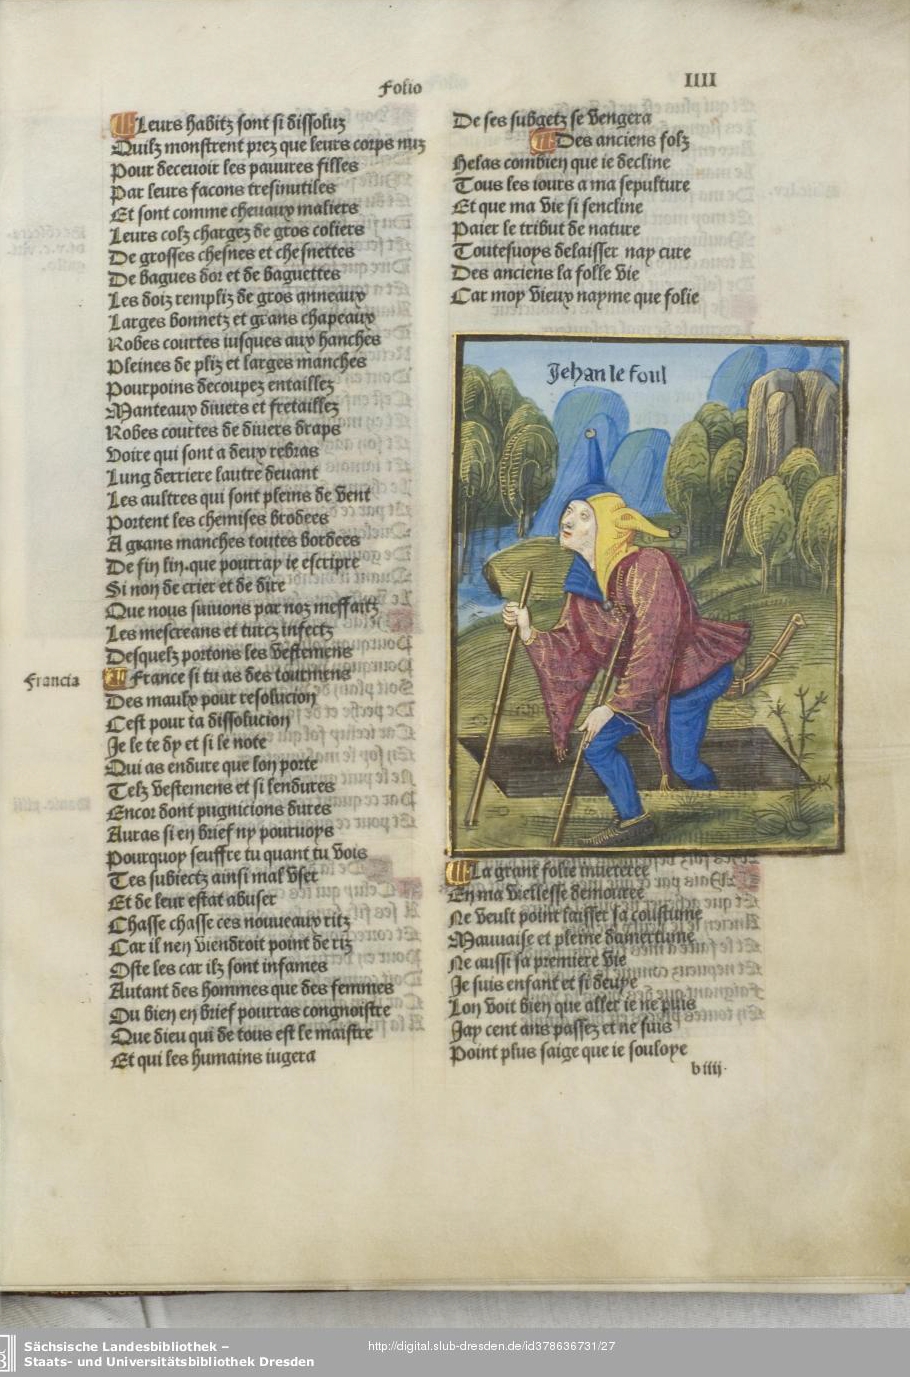 Folio
IIII
Leurs habitz sont si dissoluz
Quilz monstrent prez que leurs corps nuz
Pour deceuoir les pauures filles
Par leurs facons tresinutiles
Et sont comme cheuaux maliers
Leurs colz chargez de gros coliers
De grosses chesnes et chesnettes
De bagues dor et de baguettes
Les doiz rempliz de gros anneaux
Larges bonnetz et grans chapeaux
Robes courtes iusques aux hanches
Pleines de pliz et larges manches
Pourpoins decoupez entaillez
Manteaux diuers et fretaillez
Robes courtes de diuers draps
Voire qui sont a deux rebras
Lung derriere lautre deuant
Les aultres qui sont pleins de vent
Portent les chemises brodees
A grans manches toutes bordees
De fin lin. que pourray ie escripre
Si non de crier et de dire
Que nous suiuons par noz meffaitz
Les mescreans et turcz infectz
Desquelz portons les vestemens
Francia
France si tu as des tourmens
Des maulx pour resolucion
Cest pour ta dissolucion
Je le te dy et si le note
Qui as endure que lon porte
Telz vestemens et si lendures
Encor dont pugnicions dures
Auras si en brief ny pouruoys
Pourquoy seuffre tu quant tu vois
Tes subiectz ainsi mal vser
Et de leur estat abuser
Chasse chasse ces nouueaux ritz
Car il nen viendroit point de riz
Oste les car ilz sont infames
Autant des hommes que des femmes
Ou bien en brief pourras congnoistre
Que dieu qui de tous est le maistre
Et qui les humains iugera
De ses subgetz se vengera
Des anciens folz
Helas combien que ie decline
Tous les iours a ma sepulture
Et que ma vie si sencline
Paier le tribut de nature
Toutesuoys delaisser nay cure
Des anciens la folle vie
Car moy vieux nayme que folie
Jehan le foul
La grant folie inueteree
En ma viellesse demouree
Ne veult point laisser sa coustume
Mauuaise et pleine damertume
Ne aussi sa premiere vie
Je suis enfant et si deuye
Lon voit bien que aller ie ne puis
Jay cent ans passez et ne suis
Point plus saige que ie souloye
b iiij.
Sächsische Landesbibliothek –
Staats- und Universitätsbibliothek Dresden
http://digital.slub-dresden.de/id378636731/27